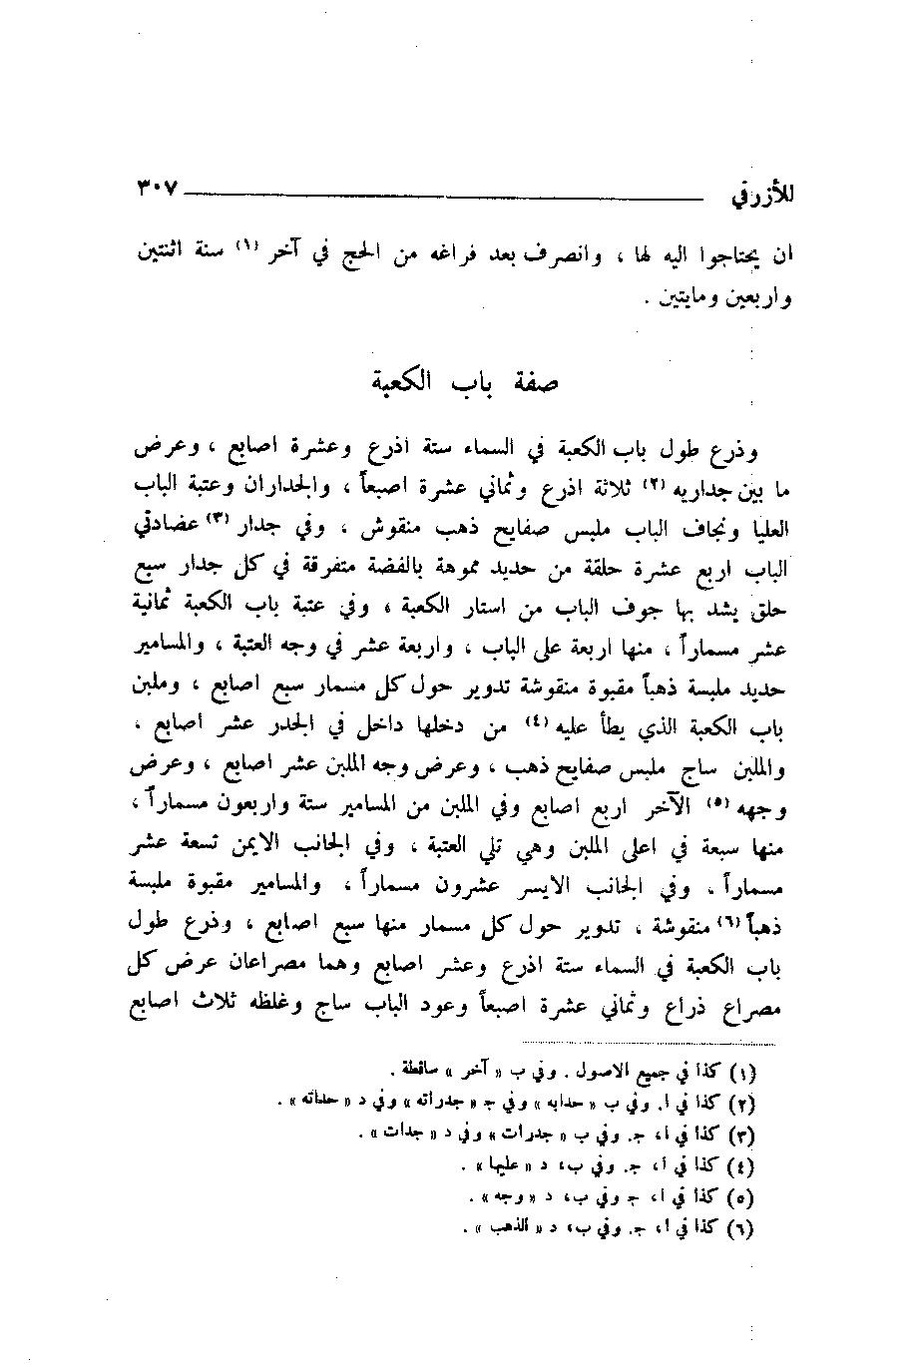 للأزرقي ٣٠٧
ان يحتاجوا اليه لها ، وانصرف بعد فراغه من الحج في آخر (١) سنة اثنتين
واربعين ومايتين .
صفة باب الكعبة
وذرع طول باب الكعبة في السماء ستة اذرع وعشرة اصابع ، وعرض
ما بين جداريه (٢) ثلاثة اذرع وثماني عشرة اصبعاً ، والجداران وعتبة الباب
العليا ونجاف الباب ملبس صفايح ذهب منقوش ، وفي جدار (٣) عضادتي
الباب اربع عشرة حلقة من حديد مموهة بالفضة متفرقة في كل جدار سبع
حلق يشد بها جوف الباب من استار الكعبة ، وفي عتبة باب الكعبة ثمانية
عشر مسماراً ، منها اربعة على الباب ، واربعة عشر في وجه العتبة ، والمسامير
حديد ملبسة ذهباً مقبوة منقوشة تدوير حول كل مسمار سبع اصابع ، وملبن
باب الكعبة الذي يطأ عليه (٤) من دخلها داخل في الجدر عشر اصابع ،
والملبن ساج ملبس صفايح ذهب ، وعرض وجه الملبن عشر اصابع ، وعرض
وجهه (٥) الآخر اربع اصابع وفي الملبن من المسامير ستة واربعون مسماراً ،
منها سبعة في اعلى الملبن وهي تلي العتبة ، وفي الجانب الايمن تسعة عشر
مسماراً ، وفي الجانب الايسر عشرون مسماراً ، والمسامير مقبوة ملبسة
ذهباً (٦) منقوشة ، تدوير حول كل مسمار منها سبع اصابع ، وذرع طول
باب الكعبة في السماء ستة اذرع وعشر اصابع وهما مصراعان عرض كل
مصراع ذراع وثماني عشرة اصبعاً وعود الباب ساج وغلظه ثلاث اصابع
(١) كذا في جميع الاصول . وفي ب « آخر » ساقطة .
(٢) كذا في ا. وفي ب « حدابه » وفي ج « جدراته » وفي د « حداته » .
(٣) كذا في ا، ج. وفي ب « جدرات » وفي د « جدات » .
(٤) كذا في ا، ج. وفي ب، د « عليها » .
(٥) كذا في ا، ج وفي ب، د « وجه » .
(٦) كذا في ا، ج. وفي ب، د « الذهب » .